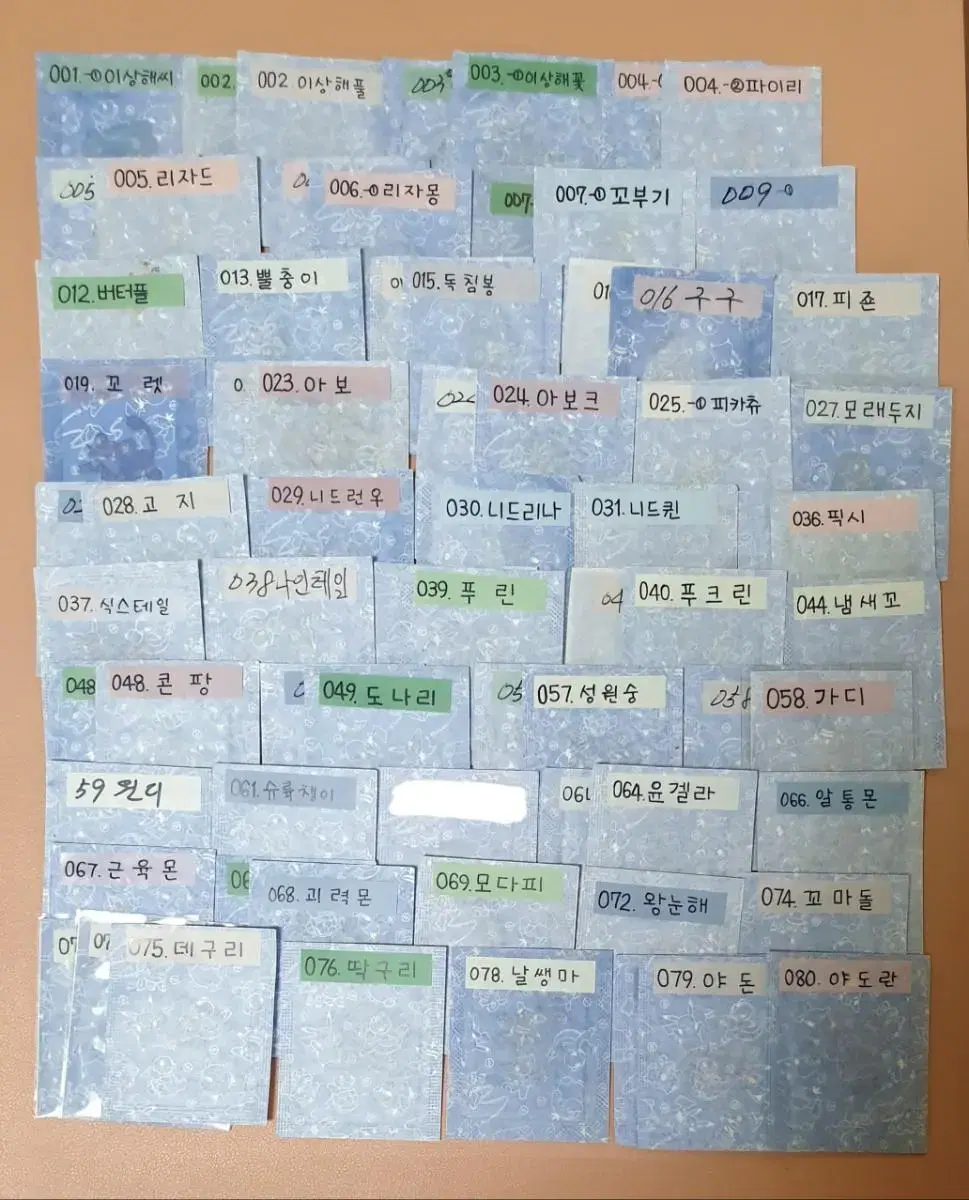 001.-①이상해씨
002.
002 이상해풀
003
003.-①이상해꽃
004.-
004.-②파이리
005
005.리자드
006.-①리자몽
007.
007.-①꼬부기
009-①
012.버터플
013.뿔충이
015.독침붕
016 구구
017.피죤
019.꼬렛
023.아보
024.아보크
025.-①피카츄
027.모래두지
028.고지
029.니드런우
030.니드리나
031.니드퀸
036.픽시
037.식스테일
038나인테일
039.푸린
04
040.푸크린
044.냄새꼬
048
048.콘팡
049.도나리
05
057.성원숭
058
058.가디
59 윈디
061.슈륙챙이
064.윤겔라
066.알통몬
067.근육몬
068.괴력몬
069.모다피
072.왕눈해
074.꼬마돌
07
07
075.데구리
076.딱구리
078.날쌩마
079.야돈
080.야도란